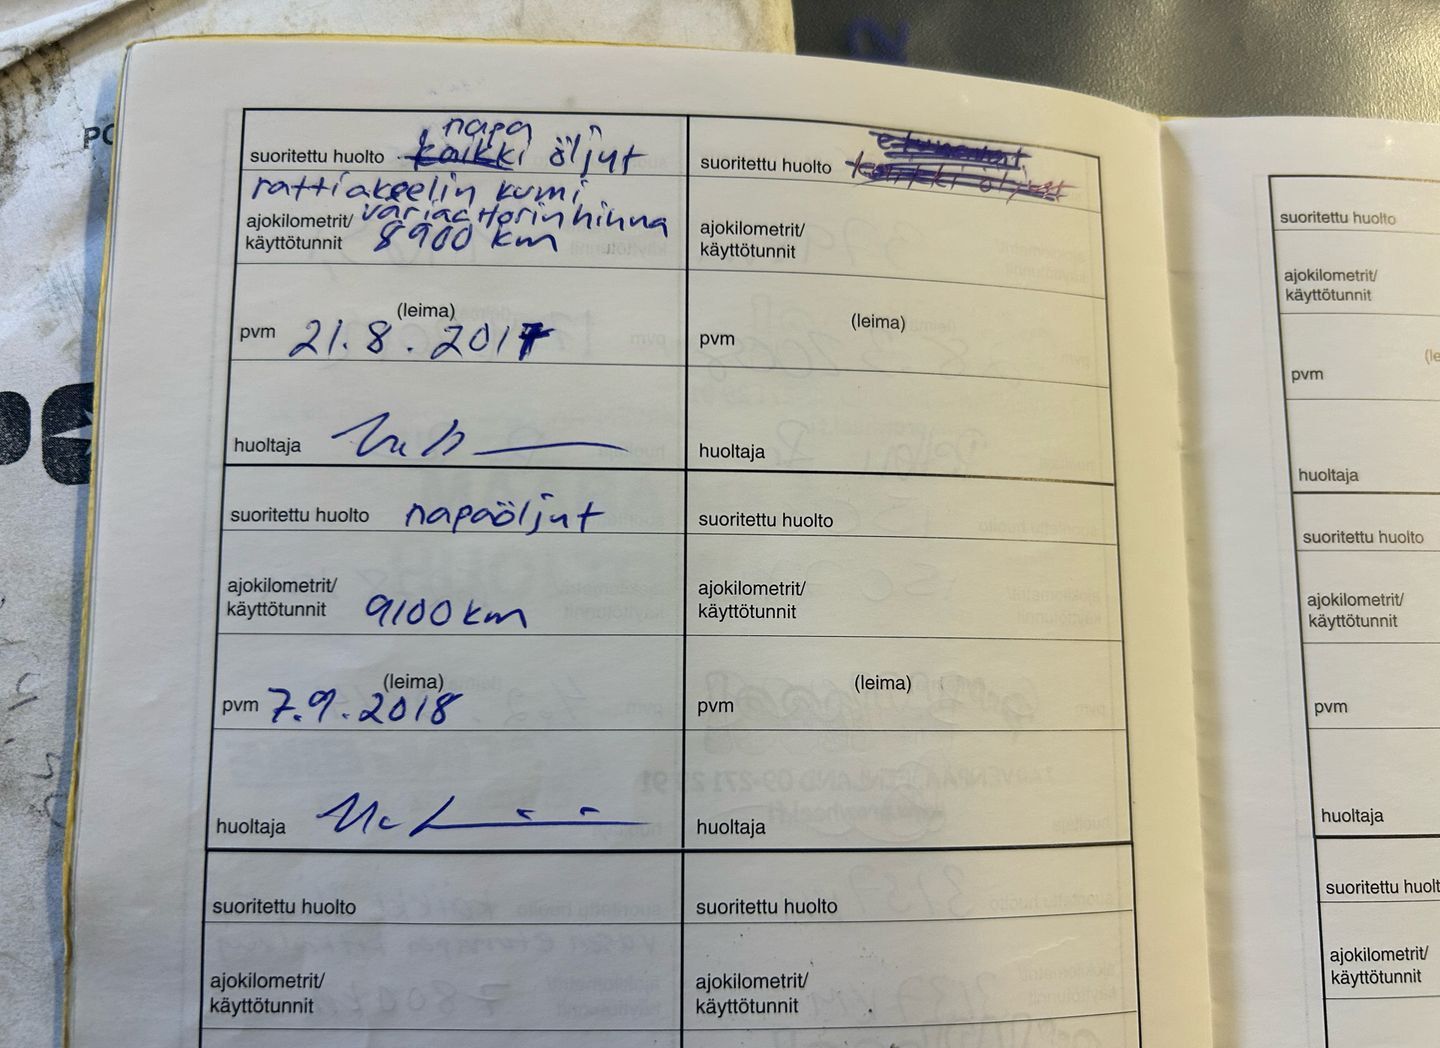 PO
napa
suoritettu huolto kaikki öljyt
rattiakselin kumi
variaattorin hinna
ajokilometrit/
käyttötunnit 8900 km
(leima)
pvm 21.8.2017
huoltaja
suoritettu huolto napaöljyt
ajokilometrit/
käyttötunnit 9100 km
(leima)
pvm 7.9.2018
huoltaja
suoritettu huolto
ajokilometrit/
käyttötunnit
suoritettu huolto kaikki öljyt
ajokilometrit/
käyttötunnit
(leima)
pvm
huoltaja
suoritettu huolto
ajokilometrit/
käyttötunnit
(leima)
pvm
huoltaja
suoritettu huolto
ajokilometrit/
käyttötunnit
suoritettu huolto
ajokilometrit/
käyttötunnit
(le
pvm
huoltaja
suoritettu huolto
ajokilometrit/
käyttötunnit
pvm
huoltaja
suoritettu huolt
ajokilometrit/
käyttötunnit